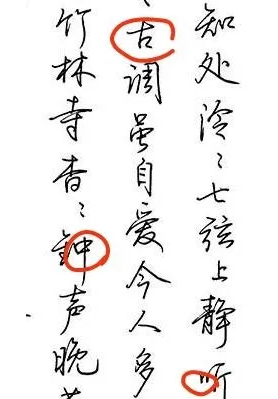 知处泠〻七弦上静听
古调虽自爱今人多
竹林寺杳〻钟声晚